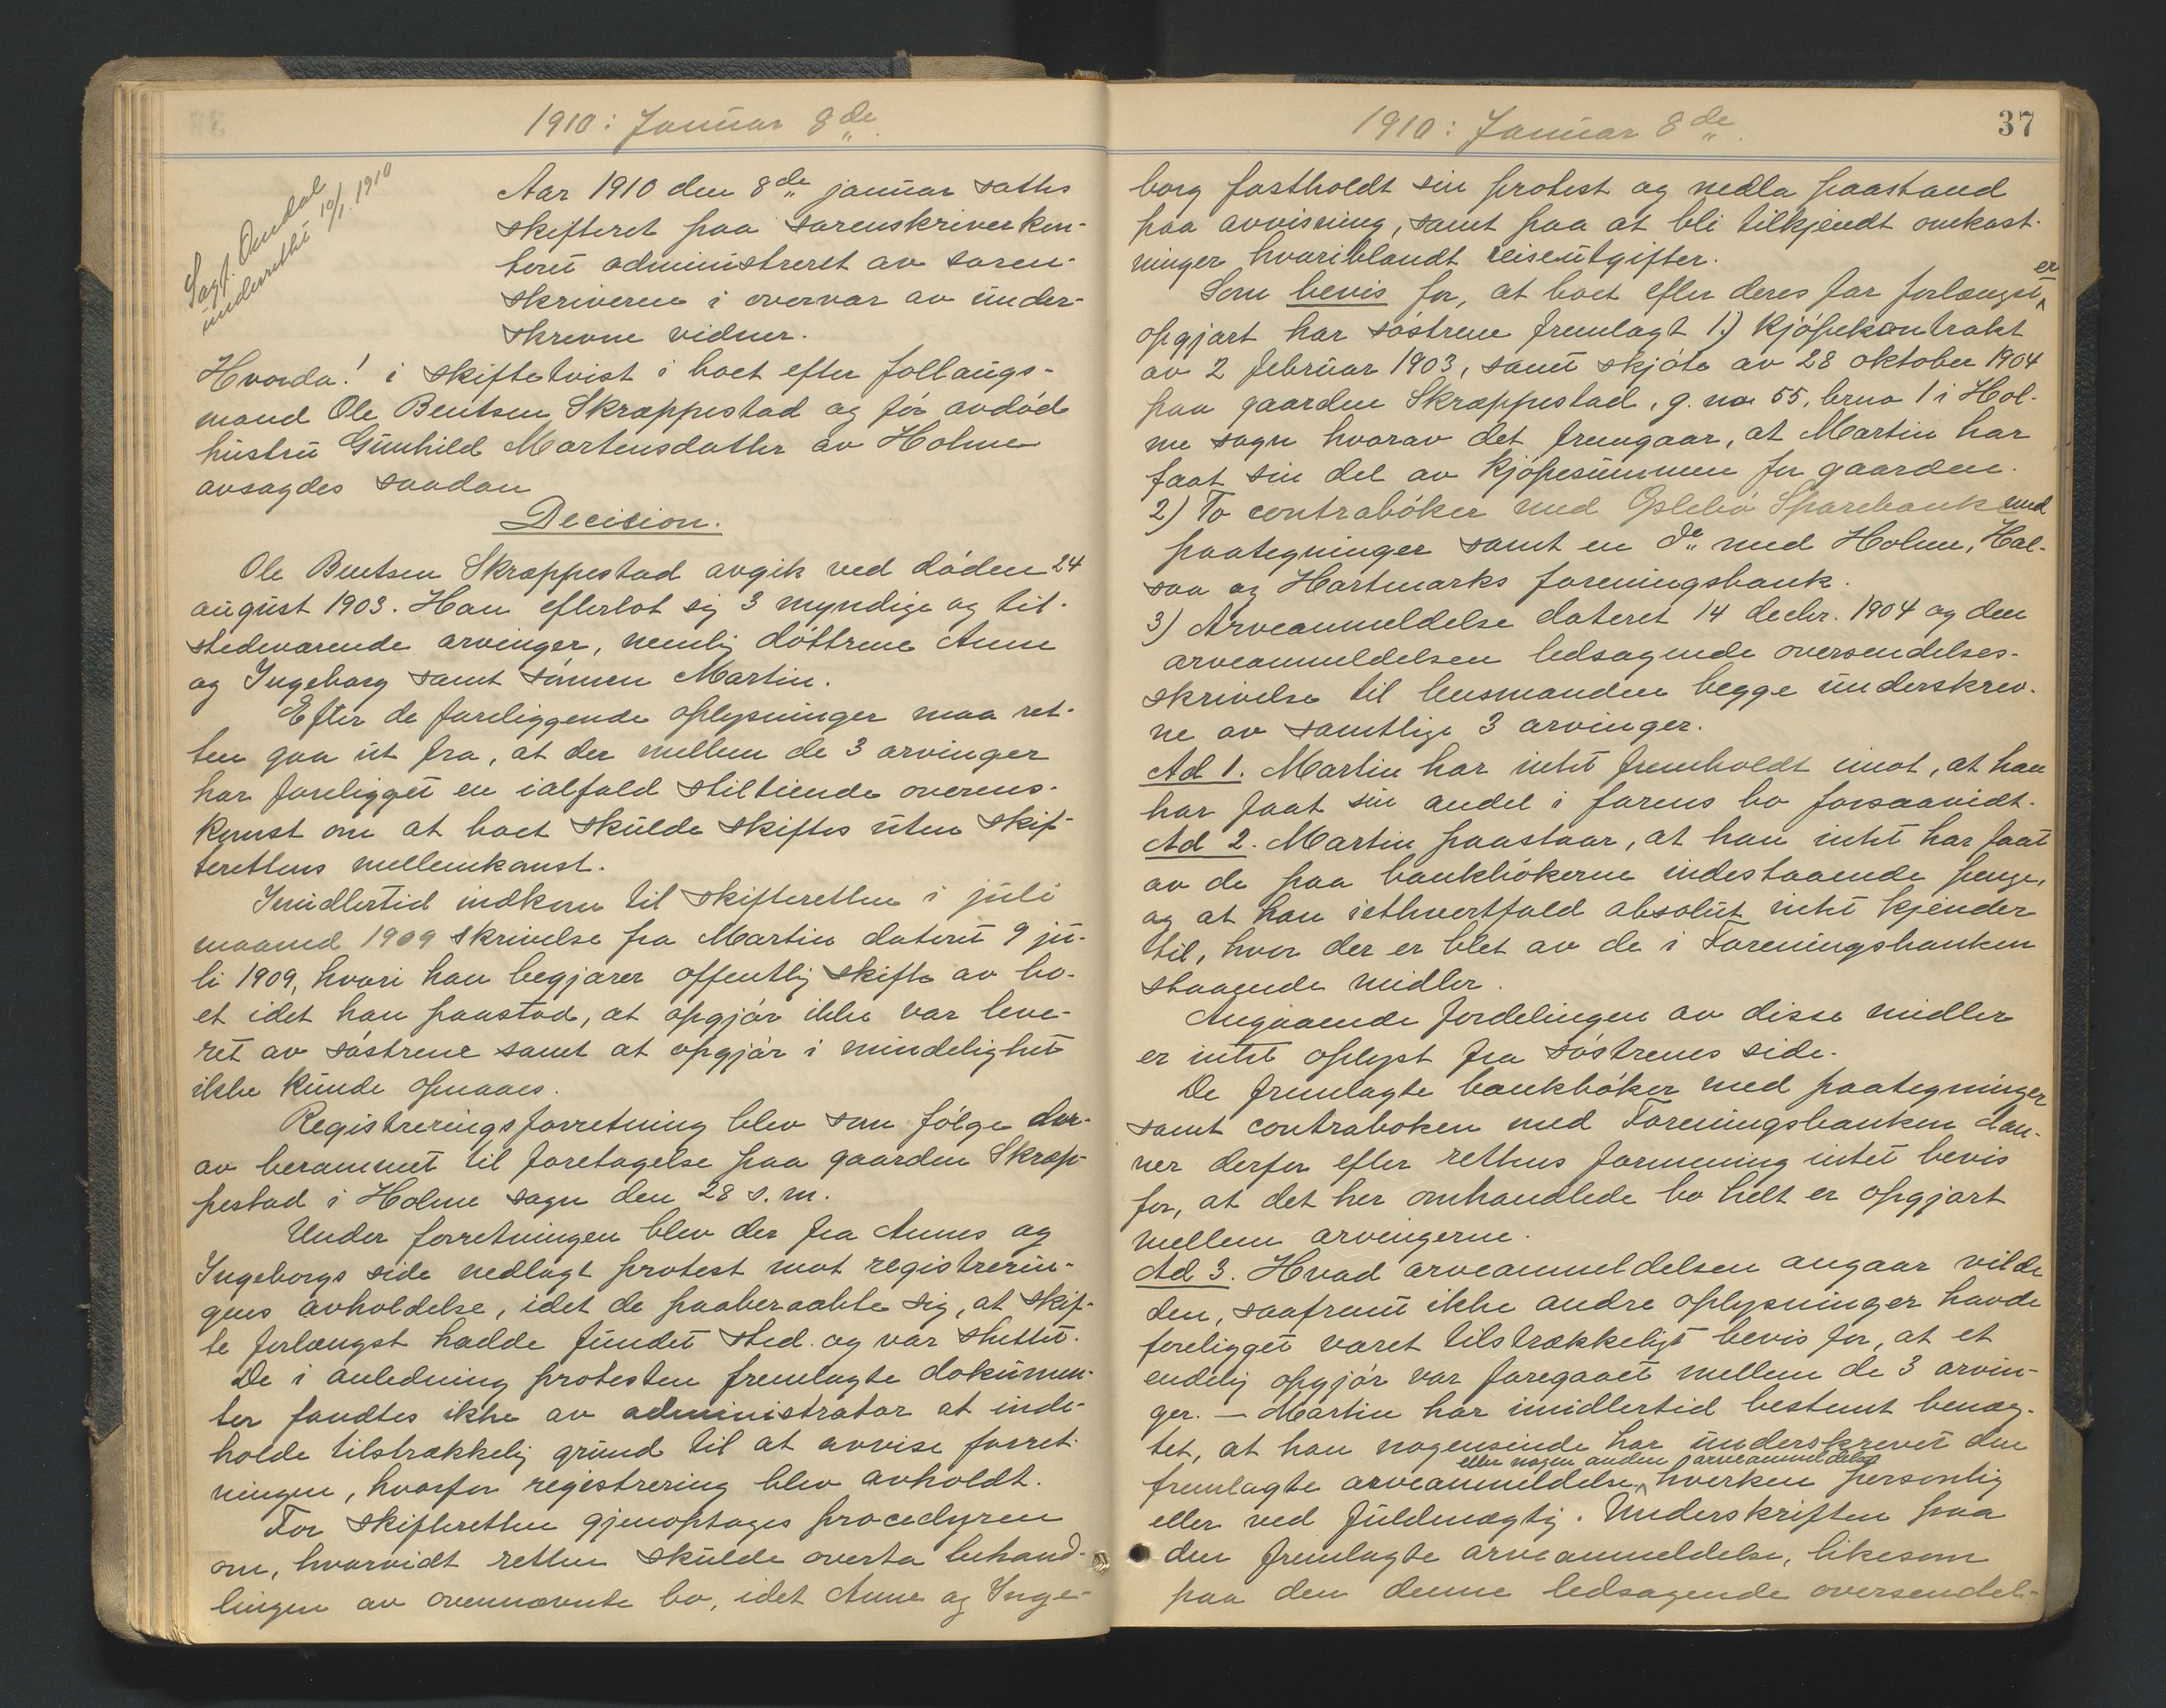 1910: Januar 8de
Sagf. Omdal
underrettet 10/1. 1910
Aar 1910 den 8de januar sattes
skifteret paa sorenskriverkon-
toret administreret av soren-
skriveren i overvær av under-
skrevne vidner.
Hvorda! i skiftetvist i boet efter follaugs-
mand Ole Bentsen Skræppestad og før avdøde
hustru Gunhild Martensdatter av Holme
avsagdes saadan
Decision.
Ole Bentsen Skræppestad avgik ved døden 24
august 1903. Han efterlot sig 3 myndige og til-
stedeværende arvinger, nemlig døttrene Anne
og Ingeborg samt sønnen Martin.
Efter de foreliggende oplysninger maa ret-
ten gaa ut fra, at der mellem de 3 arvinger
har foreligget en ialfald stiltiende overens-
komst om at boet skulde skiftes uten skif-
terettens mellemkomst.
Imidlertid indkom til skifteretten i juli
maaned 1909 skrivelse fra Martin dateret 9 ju-
li 1909, hvori han begjærer offentlig skifte av bo-
et idet han paastod, at opgjør ikke var leve-
ret av søstrene samt at opgjør i mindelighet
ikke kunde opnaaes.
Registreringsforretning blev som følge der-
av berammet til foretagelse paa gaarden Skræp-
pestad i Holme sogn den 28 s.m.
Under forretningen blev der fra Annes og
Ingeborgs side nedlagt protest mot registrerin-
gens avholdelse, idet de paaberaabte sig, at skif-
te forlængst hadde fundet sted og var sluttet.
De i anledning protesten fremlagte dokumen-
ter fandtes ikke av administrator at inde-
holde tilstrækkelig grund til at avvise forret-
ningen, hvorfor registrering blev avholdt.
For skifteretten gjenoptages procedyren
om, hvorvidt retten skulde overta behand-
lingen av ovennævnte bo, idet Anne og Inge-
1910: Januar 8de
37
borg fastholdt sin protest og nedla paastand
paa avvisning, samt paa at bli tilkjendt omkost-
ninger hvoriblandt reiseutgifter.
Som bevis for, at boet efter deres far forlængst er
opgjort har søstrene fremlagt 1.) Kjøpekontrakt
av 2 februar 1903, samt skjøte av 28 oktober 1904
paa gaarden Skræppestad, g. no 55, brno 1 i Hol-
me sogn hvorav det fremgaar, at Martin har
faat sin del av kjøpesummen for gaarden.
2) To contrabøker med Øslebø Sparebank med
paategninger samt en do med Holme, Hal-
saa og Hartmarks foreningsbank.
3) Arveanmeldelse dateret 14 decbr. 1904 og den
arveanmeldelsen ledsagende oversendelses-
skrivelse til lensmanden begge underskrev-
ne av samtlige 3 arvinger.
Ad 1. Martin har intet fremholdt imot, at han
har faat sin andel i farens bo forsaavidt.
Ad 2. Martin paastaar, at han intet har faat
av de paa bankbøkerne indestaaende penge,
og at han iethvertfald absolut intet kjender
til, hvor der er blet av de i Foreningsbanken
staaende midler.
Angaaende fordelingen av disse midler
er intet oplyst fra søstrenes side.
De fremlagte bankbøker med paategninger
samt contraboken med Foreningsbanken dan-
ner derfor efter rettens formening intet bevis
for, at det her omhandlede bo helt er opgjort
mellem arvingerne.
Ad 3. Hvad arveanmeldelsen angaar vilde
den, saafremt ikke andre oplysninger havde
foreligget været tilstrækkeligt bevis for, at et
endelig opgjør var foregaaet mellem de 3 arvin-
ger. — Martin har imidlertid bestemt benæg-
tet, at han nogensinde har underskrevet den
eller nogen anden arveanmeldelse
fremlagte arveanmeldelse, hverken personlig
eller ved fuldmægtig. Underskriften paa
den fremlagte arveanmeldelse, likesom
paa den denne ledsagende oversendel-